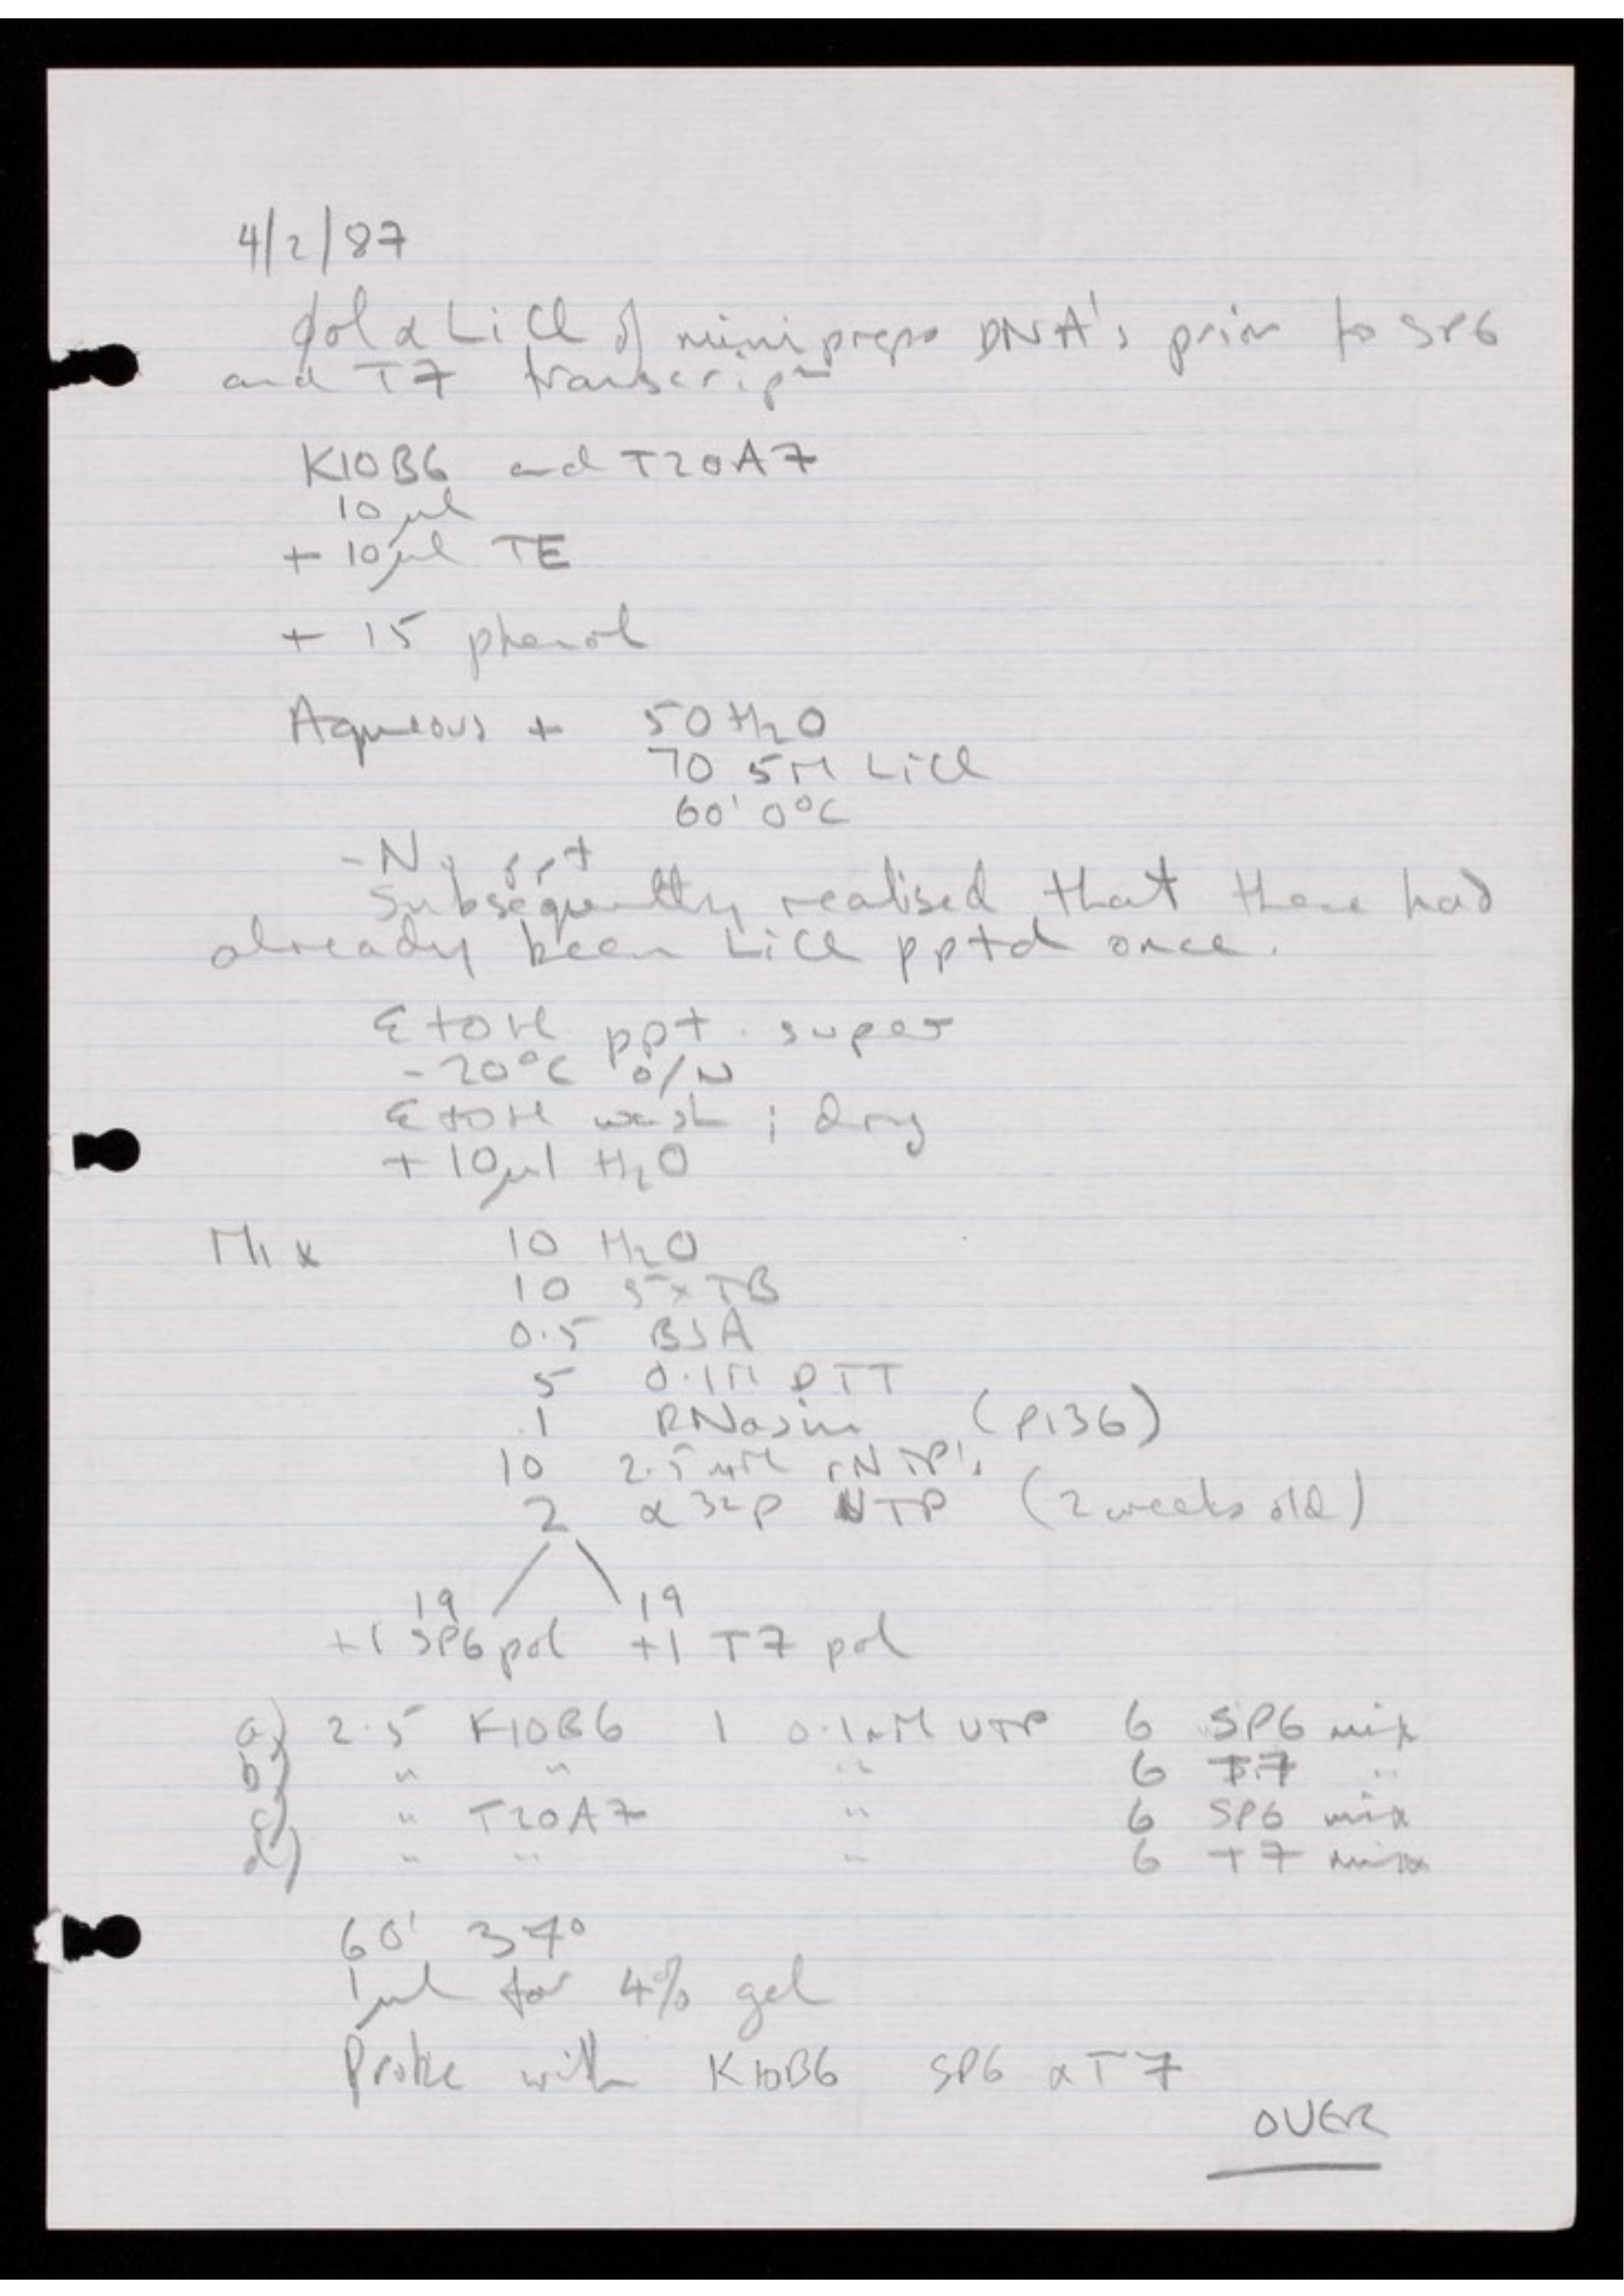 4/2/87
ϕol & LiCl of minipreps DNA's prior to SP6
and T7 transcripn
K10B6 and T20A7
10 µl
+ 10µl TE
+ 15 phenol
Aqueous + 50 H2O
70 5M LiCl
60' 0°C
- No ppt
Subsequently realised that these had
already been LiCl pptd once.
EtOH ppt. super
-20°C O/N
EtOH wash ; dry
+ 10µl H2O
Mix 10 H2O
10 5x TB
0.5 BSA
5 0.1M DTT
1 RNasin (P136)
10 2.5 mM rNTP's
2 α 32P NTP (2 weeks old)
19 19
+1 SP6 pol +1 T7 pol
a) 2.5 K10B6 1 0.1mM UTP 6 SP6 mix
b) " " " 6 T7 "
c) " T20A7 " 6 SP6 mix
d) " " " 6 T7 mix
60' 37°
1µl for 4% gel
Probe with K10B6 SP6 & T7
OVER